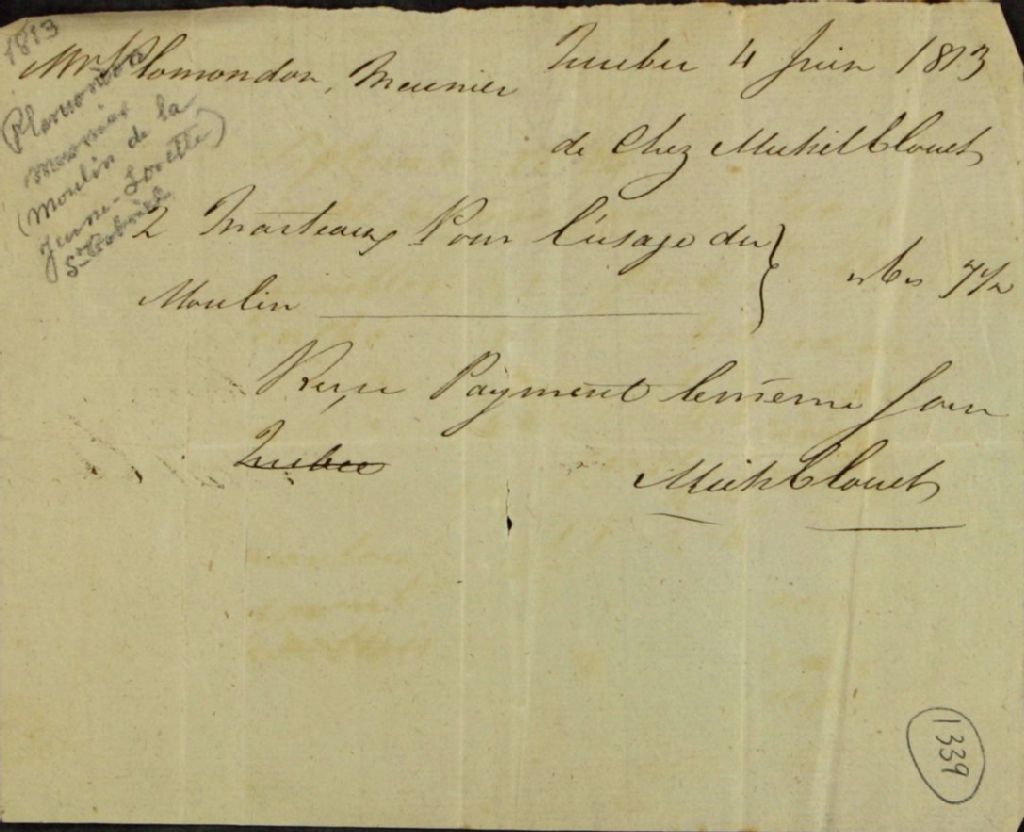 1813
Plamondon
meunier
(Moulin de la
Jeune-Lorette)
St-Gabriel
Quebec 4 Juin 1813
Mr Plomondon, Meunier
de Chez Michel Clouet
2 Marteaux Pour l'usage du
Moulin
6 7½
Reçu Payment le même Jour
Quebec
Mich Clouet
1339